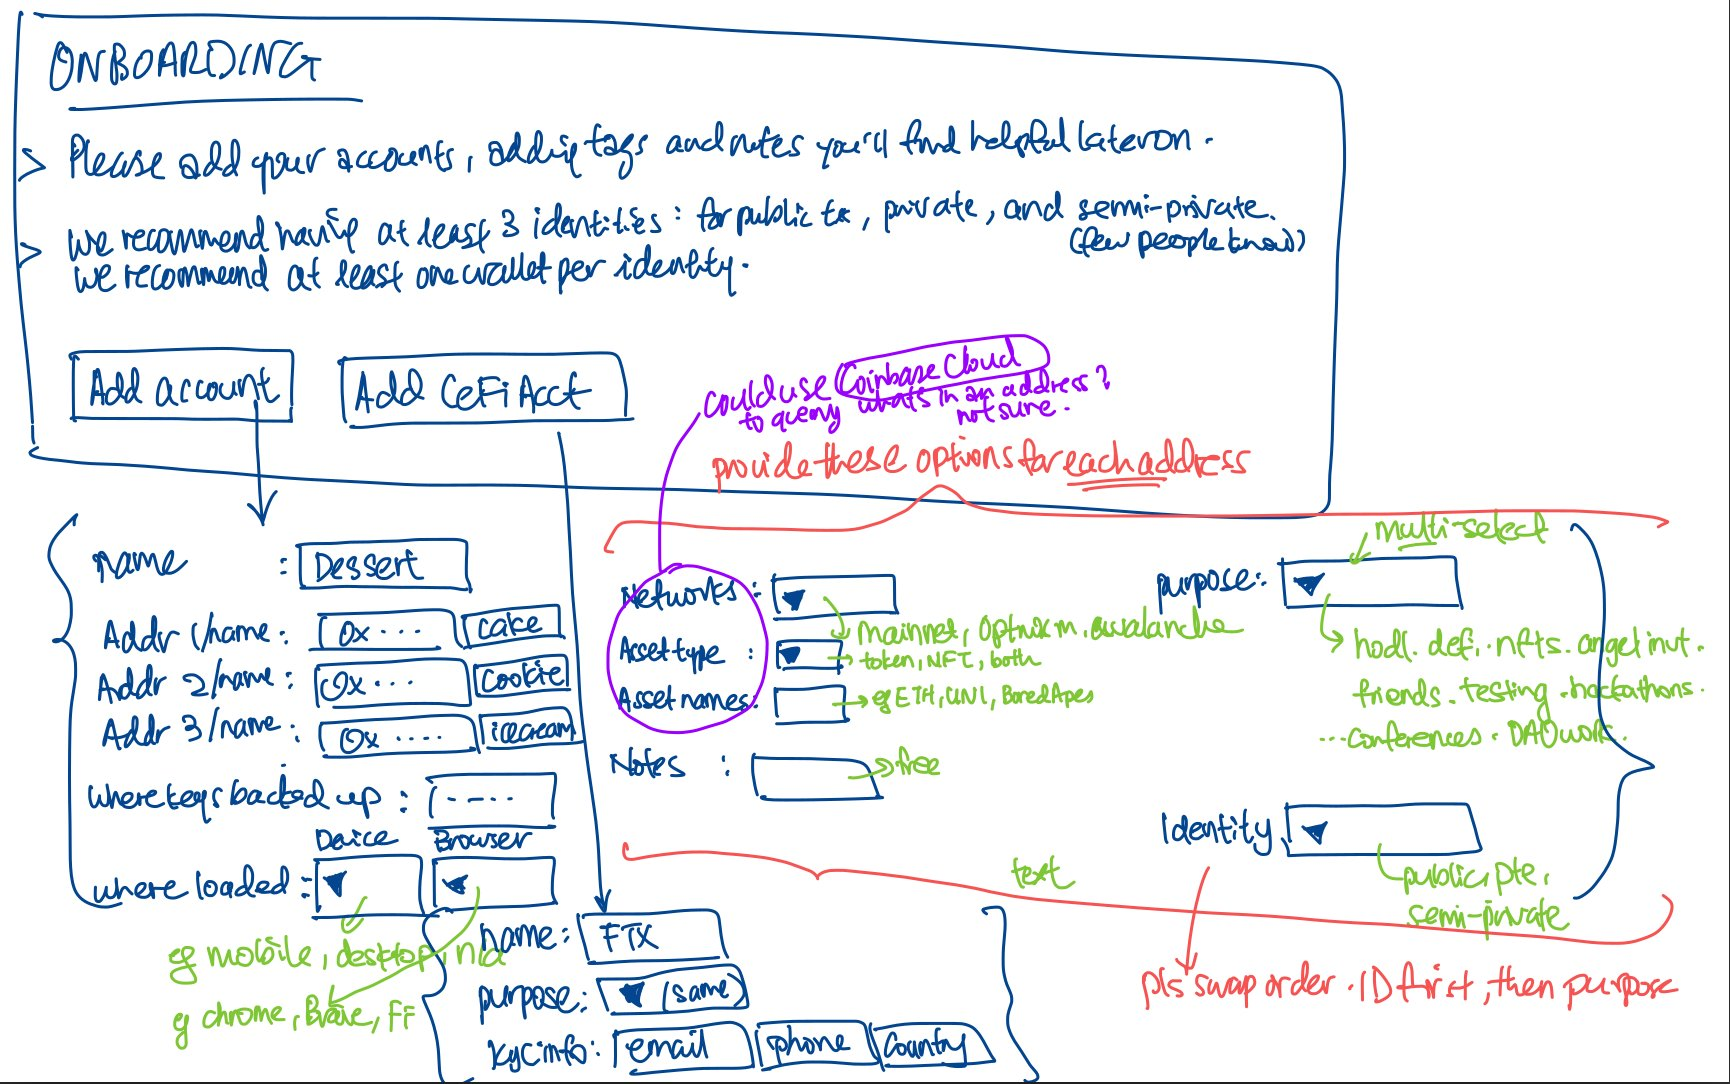 ONBOARDING
> Please add your accounts, adding tags and notes you'll find helpful later on.
> We recommend having at least 3 identities: for public tx, private, and semi-private.
(few people know)
We recommend at least one wallet per identity.
Add account
Add CeFi Acct
could use Coinbase Cloud
to query what's in an address?
not sure.
provide these options for each address
name : Dessert
Addr 1/name : 0x ... cake
Addr 2/name : 0x ... cookie
Addr 3/name : 0x .... icecream
where keys backed up : -....
Device Browser
where loaded :
eg mobile, desktop, n/a
eg chrome, Brave, FF
Networks :
mainnet, Optimism, avalanche
Asset type :
token, NFT, both
Asset names:
eg ETH, UNI, BoredApes
Notes :
free
text
multi-select
purpose:
hodl. defi. nfts. angel invt.
friends. testing. hackathons.
... conferences. DAO work.
Identity
public, pte,
semi-private
pls swap order. ID first, then purpose
name: FTX
purpose: (same)
kyc info: email phone country